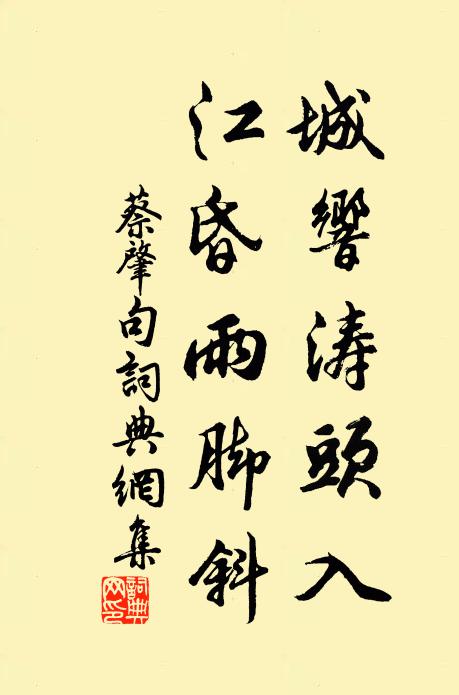 城響涛頭入
江昏雨脚斜
蔡肇句詞典網集
詞典